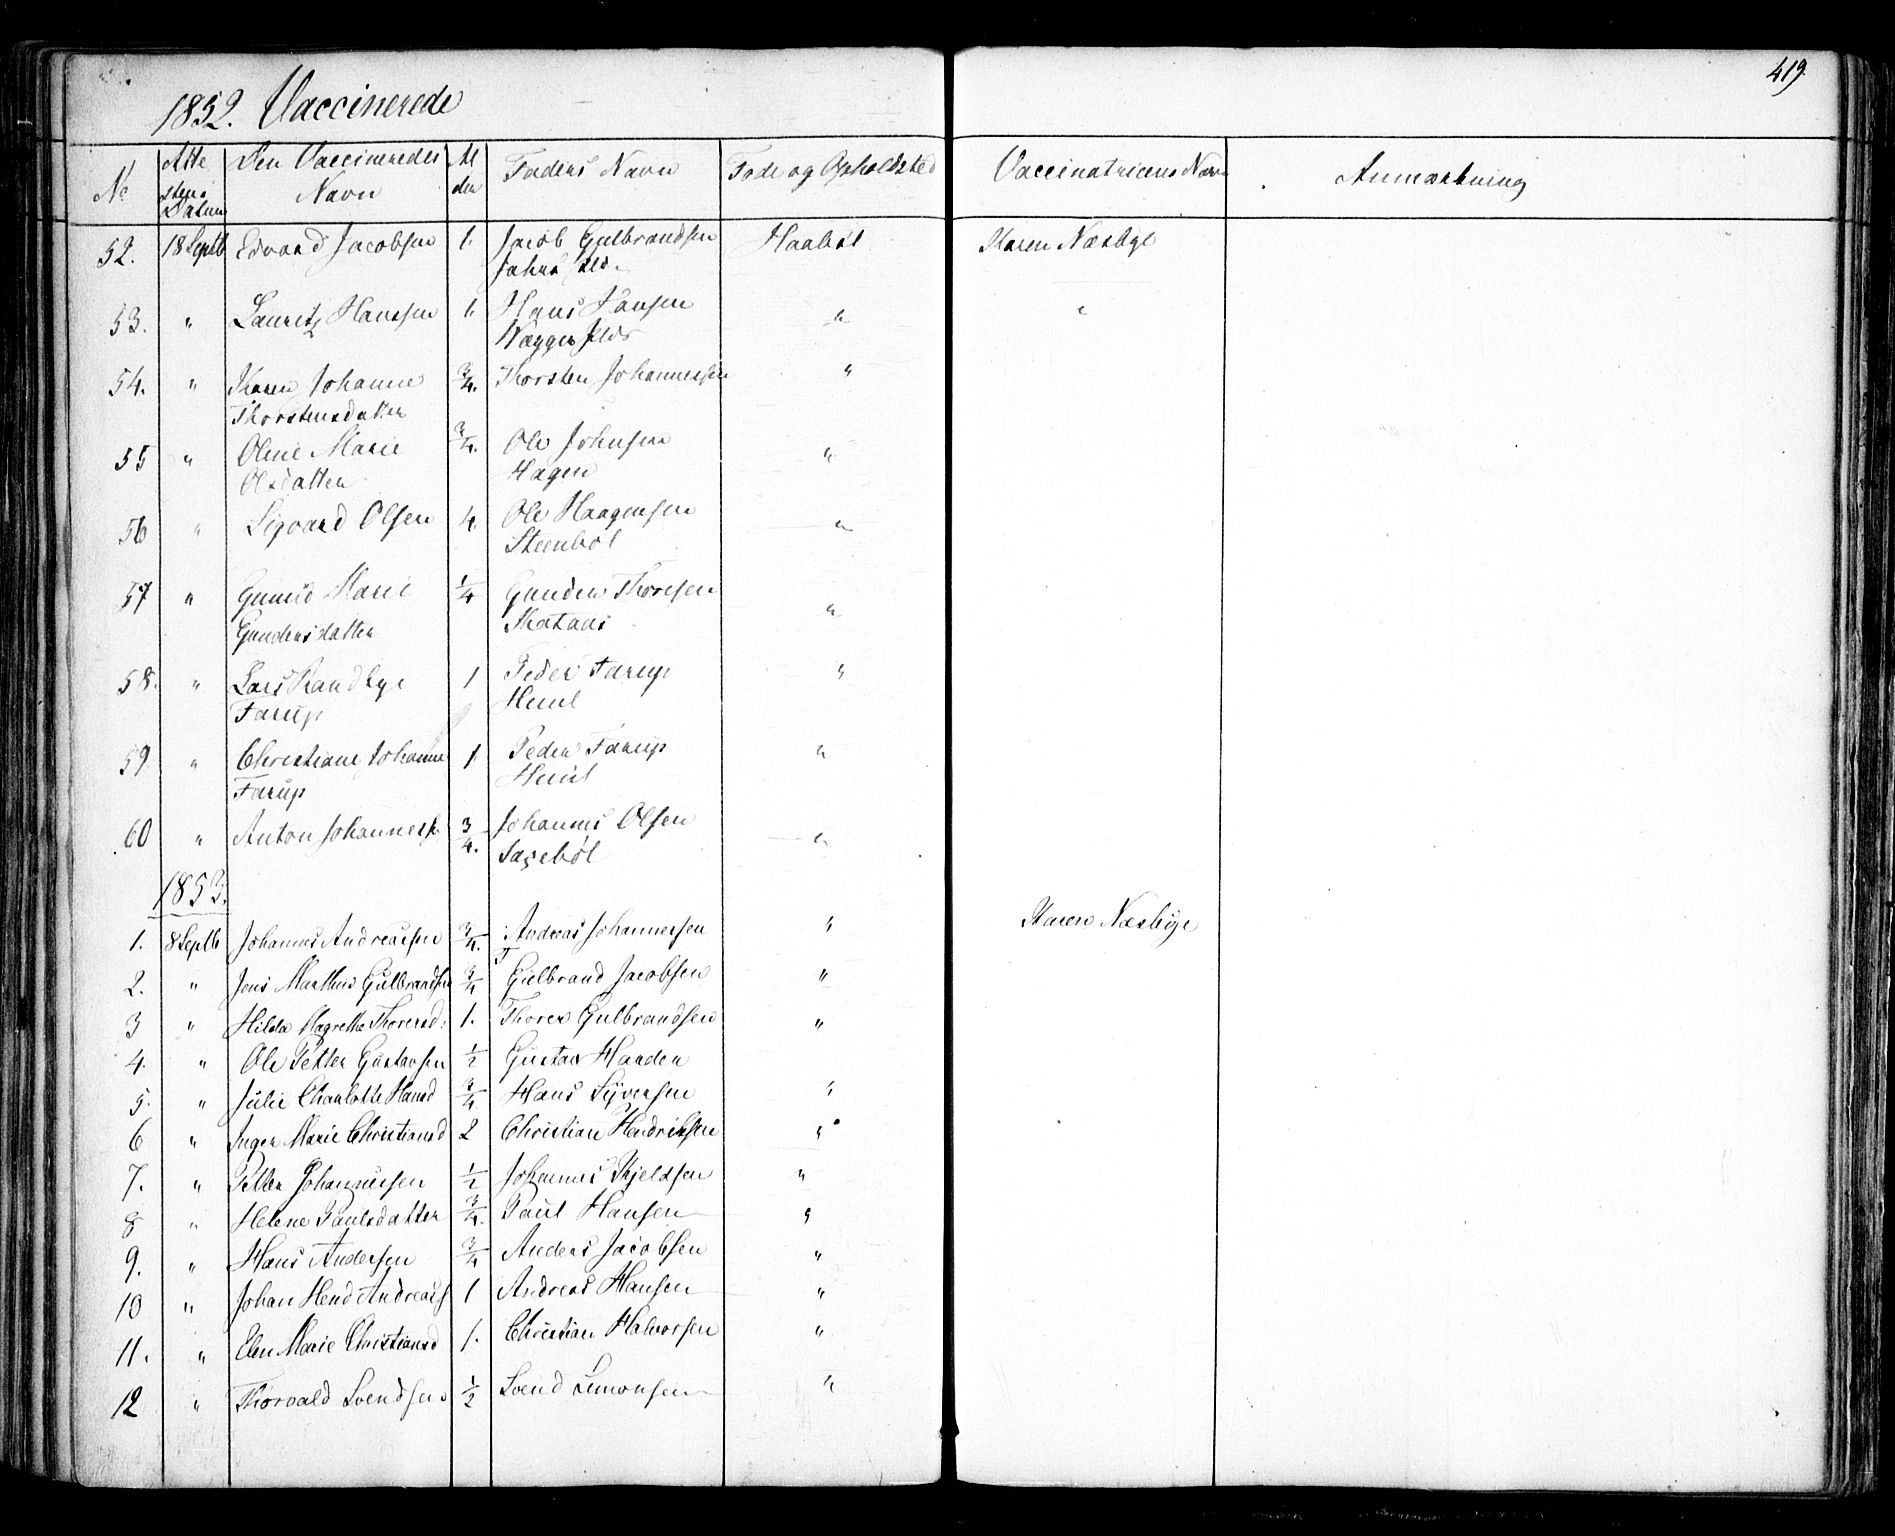 419
1852. Vaccinerede
No | Attestens Datum | Den Vaccineredes Navn | Alder | Faderens Navn | Føde og Opholdsted | Vaccinatricens Navn | Anmærkning
52. | 18 Septb | Edvard Jacobsen | 1. | Jacob Gulbrandsen | Haabøl | Karen Næsbye
53. | " | Lauritz Hanssen | 1. | Hans Hansen | " | "
54. | " | Karen Johanne | 3/4. | Thorsten Johannessen | "
Thorstensdatter
55 | " | Oline Marie | 3/4. | Ole Johnsen | "
Olsdatter | Hagen
56 | " | Sigvard Olsen | 4. | Ole Haagensen | "
Steenbøl
57 | " | Gunild Marie | 1/4 | Gunder Thoresen | "
Gundersdatter
58. | " | Lars Randbye | 1 | Peder Farup | "
Farup
59. | " | Christiane Johanne | 1. | Peder Farup | "
Farup
60 | " | Anton Johanness. | 3/4. | Johannes Olsen | "
1853.
1. | 8 Septb | Johannes Andreassen | 3/4. | Andreas Johannessen | " | Karen Næsbye
2. | " | Jens Mathus Gulbrandsen | 3/4 | Gulbrand Jacobsen | "
3 | " | Hilda Magrethe Thoresd. | 1. | Thorer Gulbrandsen | "
4. | " | Ole Petter Gustavsen | 1/2 | Gustav Haaden
5. | " | Julie Charlotte Hansd | 3/4 | Hans Syversen | "
6 | " | Inger Marie Christiansd | 2 | Christian Hendriksen | "
7. | " | Petter Johannesen | 1/2 | Johannes Kjeldsen | "
8 | " | Helene Paulsdatter | 3/4. | Paul Hansen | "
9. | " | Hans Andersen | 3/4 | Anders Jacobsen | "
10 | " | Johan Hend Andreass | 1 | Andreas Hansen | "
11. | " | Elen Marie Christiansd | 1. | Christian Halvorsen | "
12 | " | Thorvald Svendsen | 1/2 | Svend Simonsen | "